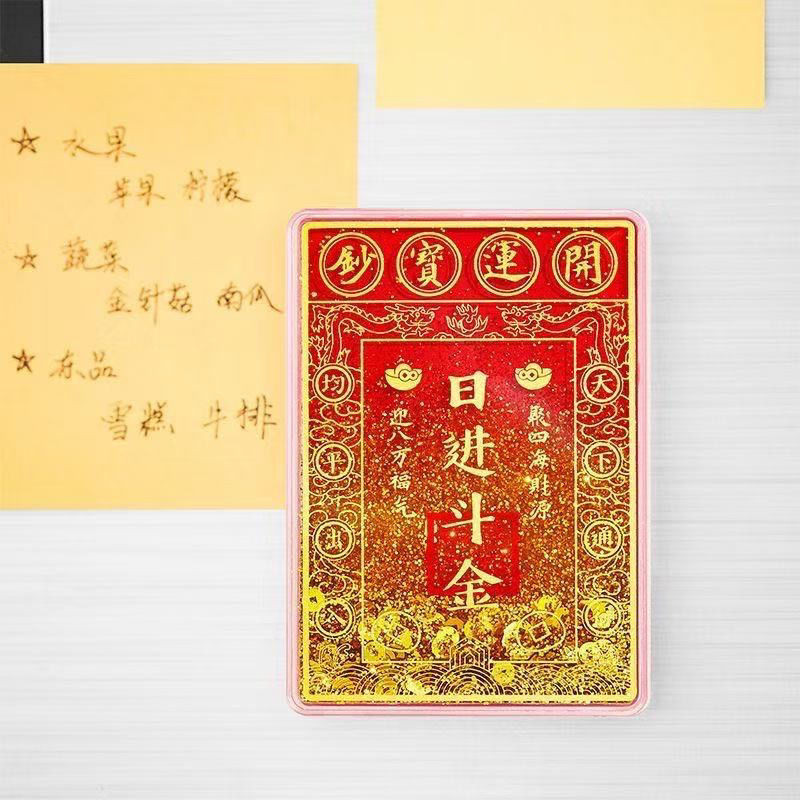 ☆ 水果
苹果 柠檬
☆ 蔬菜
金针菇 南瓜
☆ 冻品
雪糕 牛排
開運寶鈔
天下通
均平出入
聚四海財源
日进斗金
迎八方福气